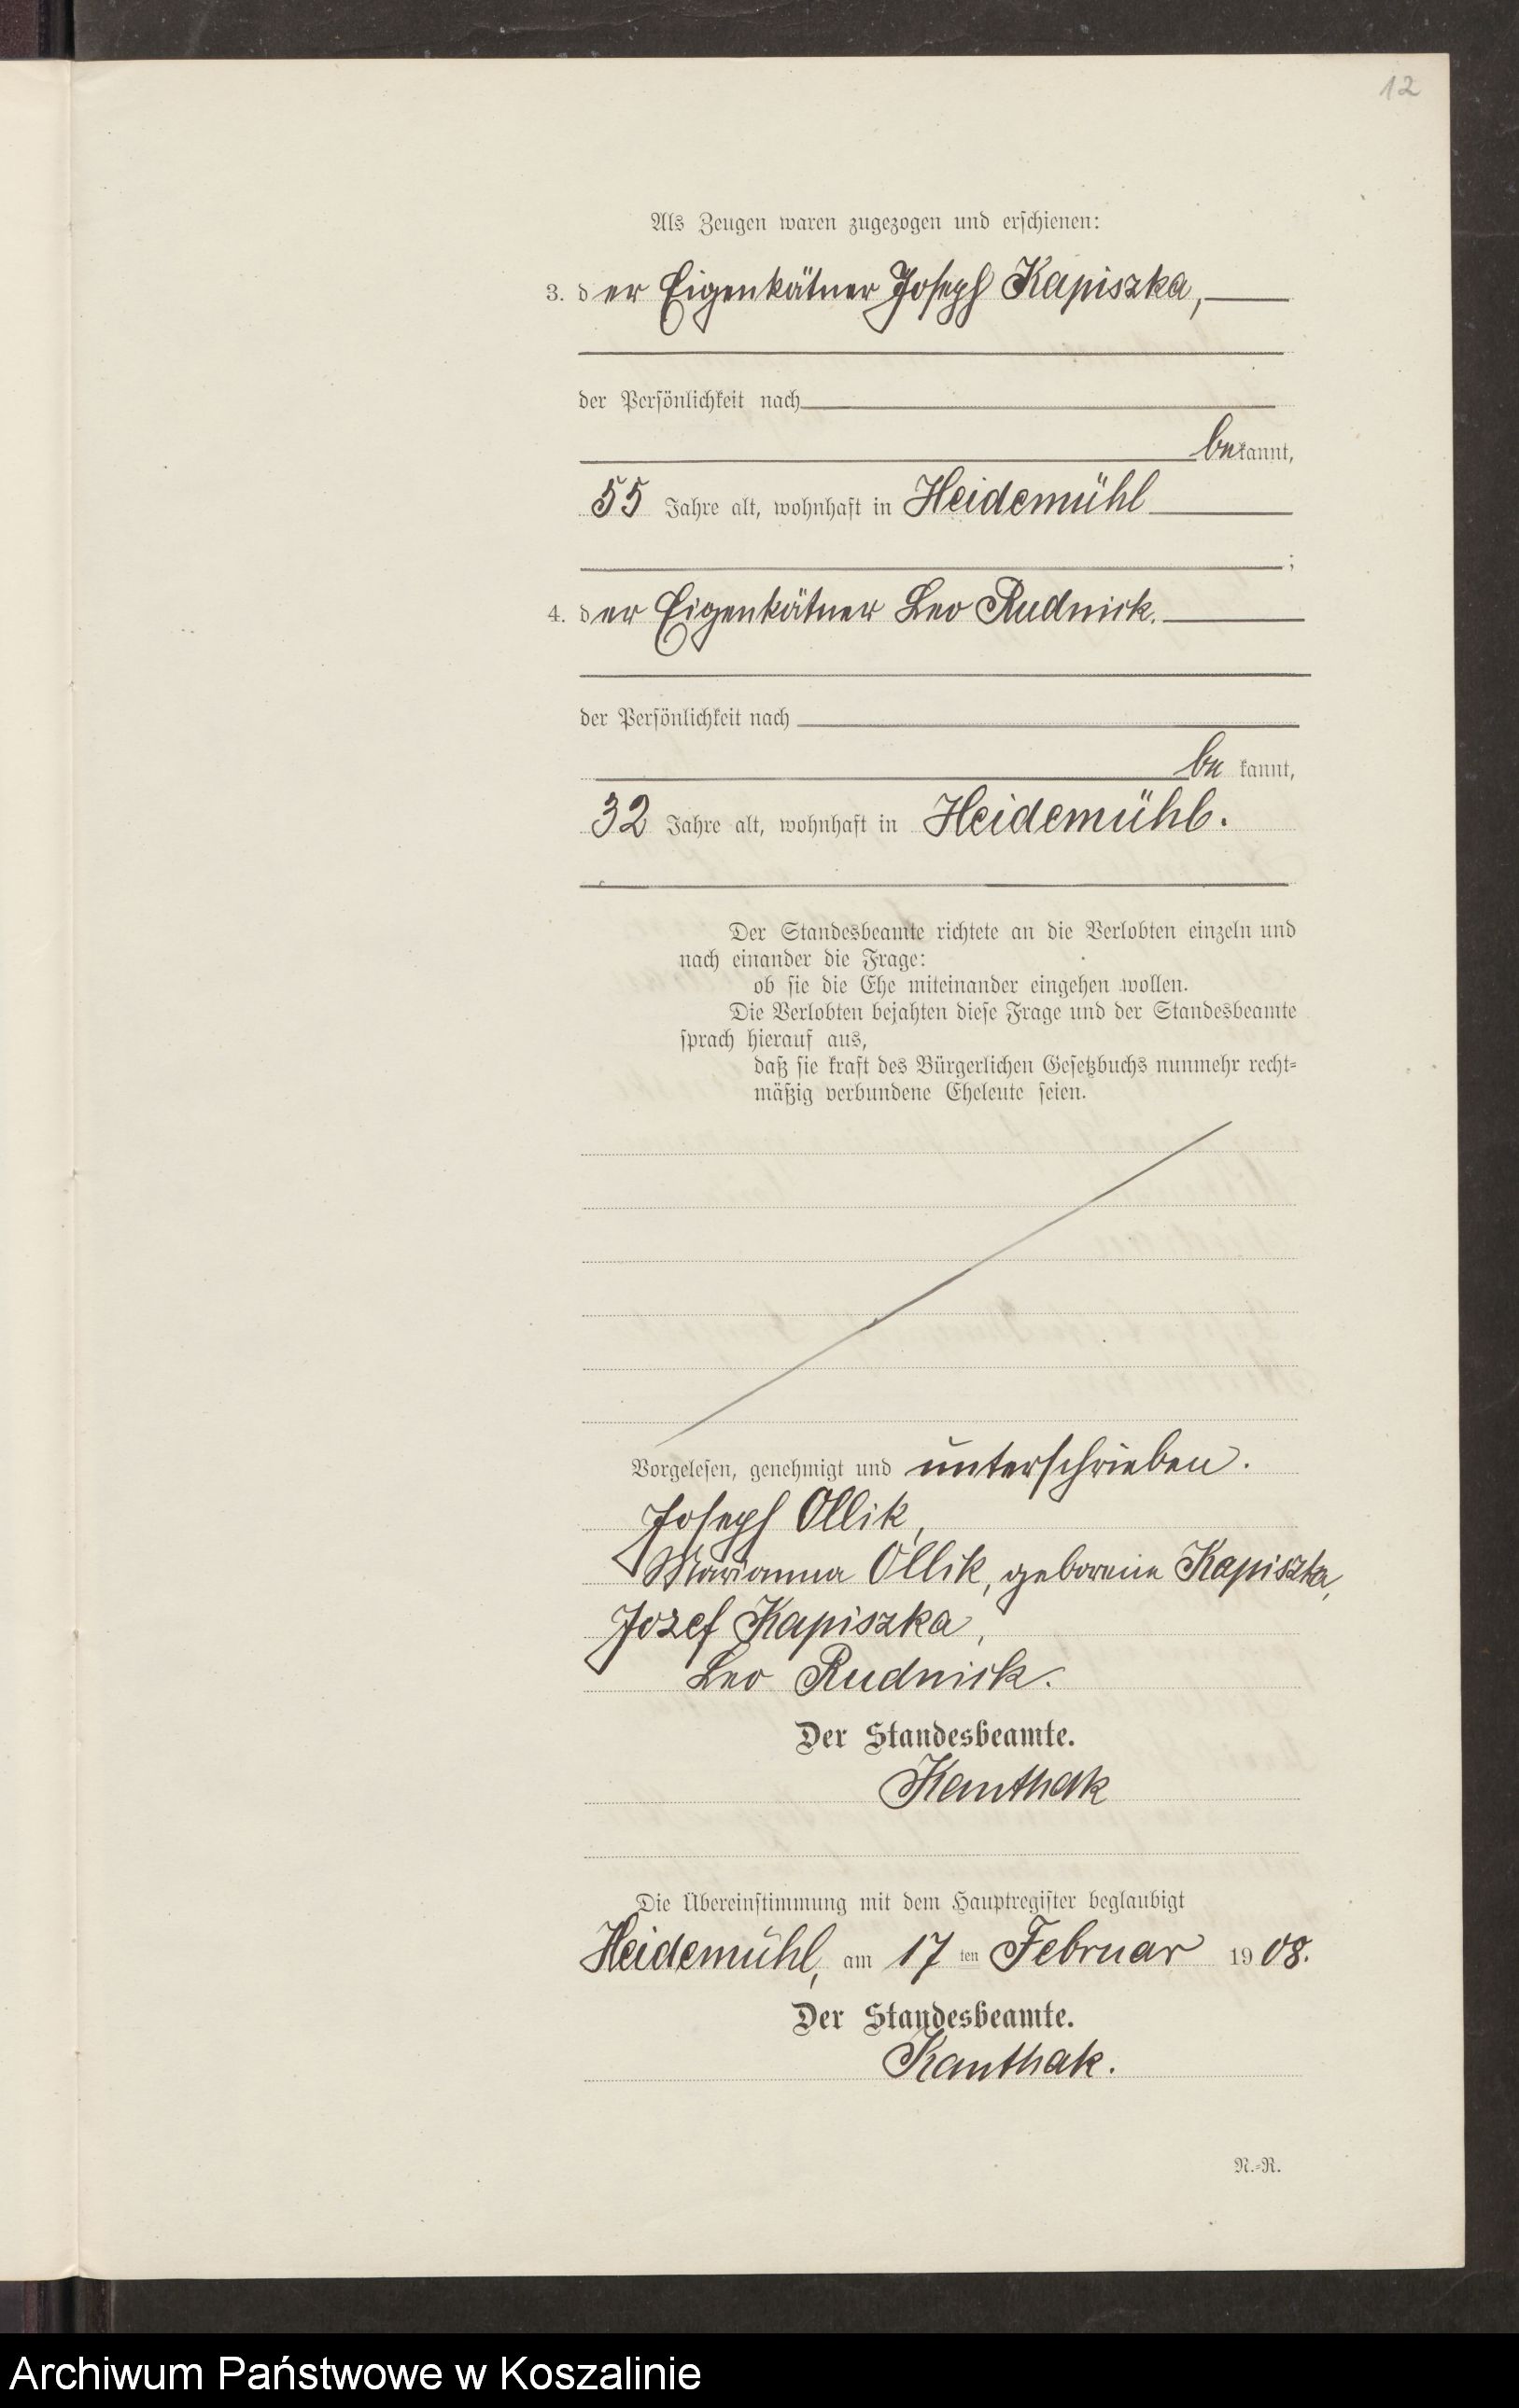 12
Als Zeugen waren zugezogen und erschienen:
3. der Eigenkätner Joseph Kapiszka,
der Persönlichkeit nach
bekannt,
55 Jahre alt, wohnhaft in Heidemühl
;
4. der Eigenkätner Leo Rudnick.
der Persönlichkeit nach
be kannt,
32 Jahre alt, wohnhaft in Heidemühl.
Der Standesbeamte richtete an die Verlobten einzeln und
nach einander die Frage:
ob sie die Ehe miteinander eingehen wollen.
Die Verlobten bejahten diese Frage und der Standesbeamte
sprach hierauf aus,
daß sie kraft des Bürgerlichen Gesetzbuchs nunmehr recht=
mäßig verbundene Eheleute seien.
Vorgelesen, genehmigt und unterschrieben.
Joseph Ollik,
Marianna Ollik, geborene Kapiszka,
Jozef Kapiszka,
Leo Rudnick.
Der Standesbeamte.
Kanthak
Die Übereinstimmung mit dem Hauptregister beglaubigt
Heidemühl, am 17 ten Februar 1908.
Der Standesbeamte.
Kanthak.
N.=R.
Archiwum Państwowe w Koszalinie